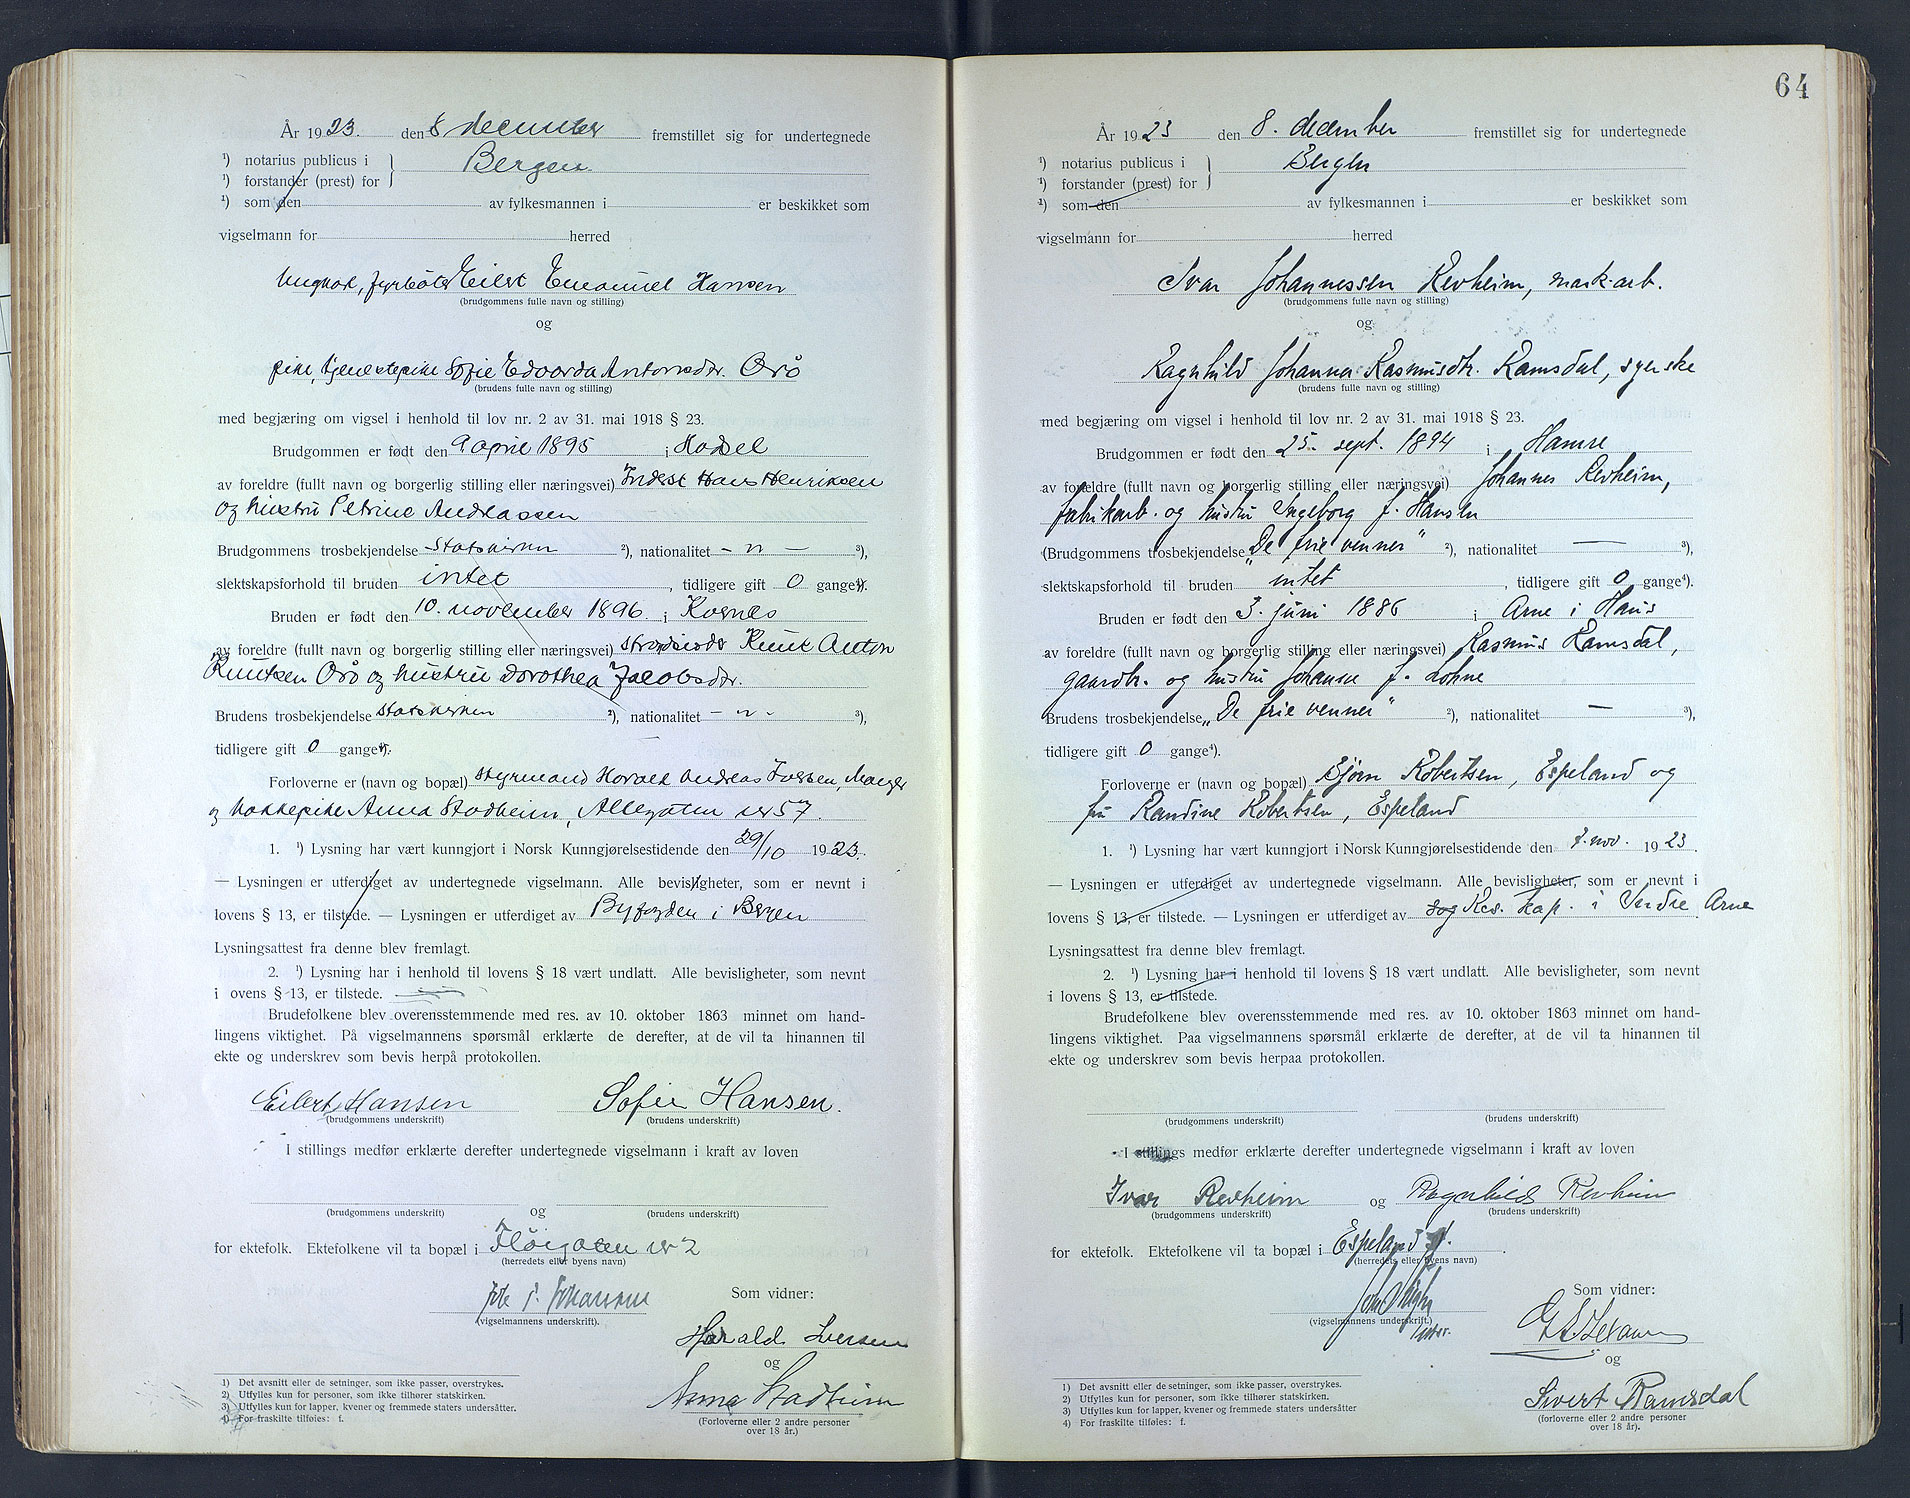 År 1923. den 8 december fremstillet sig for undertegnede
¹) notarius publicus i } Bergen.
¹) forstander (prest) for
¹) som den av fylkesmannen i er beskikket som
vigselmann for herred
Ungkar, fyrbøter Eilert Emanuel Hansen
(brudgommens fulle navn og stilling)
og
pike, tjenestepike Sofie Edvarda Antonsdtr. Orö
(brudens fulle navn og stilling)
med begjæring om vigsel i henhold til lov nr. 2 av 31. mai 1918 § 23.
Brudgommen er født den 9. april 1895 i Hadsel
av foreldre (fullt navn og borgerlig stilling eller næringsvei) Inderst Hans Henriksen
og hustru Petrine Andreassen
Brudgommens trosbekjendelse statskirken ²), nationalitet - n - ³),
slektskapsforhold til bruden intet , tidligere gift 0 gange⁴).
Bruden er født den 10. november 1896 i Kvernes
av foreldre (fullt navn og borgerlig stilling eller næringsvei) Knut Anton
Knutsen Orö og hustru Dorothea Jacobsdtr.
Brudens trosbekjendelse statskirken ²), nationalitet - n - ³),
tidligere gift 0 gange⁴).
Forloverne er (navn og bopæl) styrmand Harald Andreas Iversen, Manger
og kokkepike Anna Stadheim, Allegaten nr 57.
1. ¹) Lysning har vært kunngjort i Norsk Kunngjørelsestidende den 29/10 1923.
— Lysningen er utferdiget av undertegnede vigselmann. Alle bevisligheter, som er nevnt i
lovens § 13, er tilstede. — Lysningen er utferdiget av Byfogden i Bergen
Lysningsattest fra denne blev fremlagt.
2. ¹) Lysning har i henhold til lovens § 18 vært undlatt. Alle bevisligheter, som nevnt
i ovens § 13, er tilstede.
Brudefolkene blev overensstemmende med res. av 10. oktober 1863 minnet om hand-
lingens viktighet. På vigselmannens spørsmål erklærte de derefter, at de vil ta hinannen til
ekte og underskrev som bevis herpå protokollen.
Eilert Hansen Sofie Hansen.
(brudgommens underskrift) (brudens underskrift)
I stillings medfør erklærte derefter undertegnede vigselmann i kraft av loven
og
(brudgommens underskrift) (brudens underskrift)
for ektefolk. Ektefolkene vil ta bopæl i Fløigaten nr 2
(herredets eller byens navn)
Johansen Som vidner:
(vigselmannens underskrift).
Harald Iversen
og
Anna Stadheim
(Forloverne eller 2 andre personer
over 18 år.)
1) Det avsnitt eller de setninger, som ikke passer, overstrykes.
2) Utfylles kun for personer, som ikke tilhører statskirken.
3) Utfylles kun for lapper, kvener og fremmede staters undersåtter.
4) For fraskilte tilføies: f.
64
År 1923 den 8. december fremstillet sig for undertegnede
¹) notarius publicus i } Bergen
¹) forstander (prest) for
¹) som den av fylkesmannen i er beskikket som
vigselmann for herred
Ivar Johannessen Revheim, mask.arb.
(brudgommens fulle navn og stilling)
og
Ragnhild Johanna Rasmusdtr. Ramsdal, syerske
(brudens fulle navn og stilling)
med begjæring om vigsel i henhold til lov nr. 2 av 31. mai 1918 § 23.
Brudgommen er født den 25. sept. 1894 i Hamre
av foreldre (fullt navn og borgerlig stilling eller næringsvei) Johannes Revheim,
fabrikarb. og hustru Ingeborg f. Hansen
(Brudgommens trosbekjendelse "De frie venner" ²), nationalitet — ³),
slektskapsforhold til bruden intet , tidligere gift 0 gange⁴).
Bruden er født den 3. juni 1886 i Arne i Haus
av foreldre (fullt navn og borgerlig stilling eller næringsvei) Rasmus Ramsdal,
gaardbr. og hustru Johanne f. Lohne
Brudens trosbekjendelse „De frie venner" ²), nationalitet — ³),
tidligere gift 0 gange⁴).
Forloverne er (navn og bopæl) Bjørn Robertsen, Espeland og
fru Randine Robertsen, Espeland
1. ¹) Lysning har vært kunngjort i Norsk Kunngjørelsestidende den 7. nov. 1923.
— Lysningen er utferdiget av undertegnede vigselmann. Alle bevisligheter, som er nevnt i
lovens § 13, er tilstede. — Lysningen er utferdiget av Res. kap. i Indre Arne
Lysningsattest fra denne blev fremlagt.
2. ¹) Lysning har i henhold til lovens § 18 vært undlatt. Alle bevisligheter, som nevnt
i lovens § 13, er tilstede.
Brudefolkene blev overensstemmende med res. av 10. oktober 1863 minnet om hand-
lingens viktighet. Paa vigselmannens spørsmål erklærte de derefter, at de vil ta hinannen til
ekte og underskrev som bevis herpaa protokollen.
(brudgommens underskrift) (brudens underskrift)
I stillings medfør erklærte derefter undertegnede vigselmann i kraft av loven
Ivar Revheim og Ragnhild Revheim
(brudgommens underskrift) (brudens underskrift)
for ektefolk. Ektefolkene vil ta bopæl i Espeland
(herredets eller byens navn)
Som vidner:
(vigselmannens underskrift.)
og
Sivert Ramsdal
(forloverne eller 2 andre personer
over 18 år).
1) Det avsnitt eller de setninger, som ikke passer, overstrykes.
2) Utfylles kun for personer, som ikke tilhører statskirken.
3) Utfylles kun for lapper, kvener og fremmede staters undersåtter
4) For fraskilte tilføies: f.